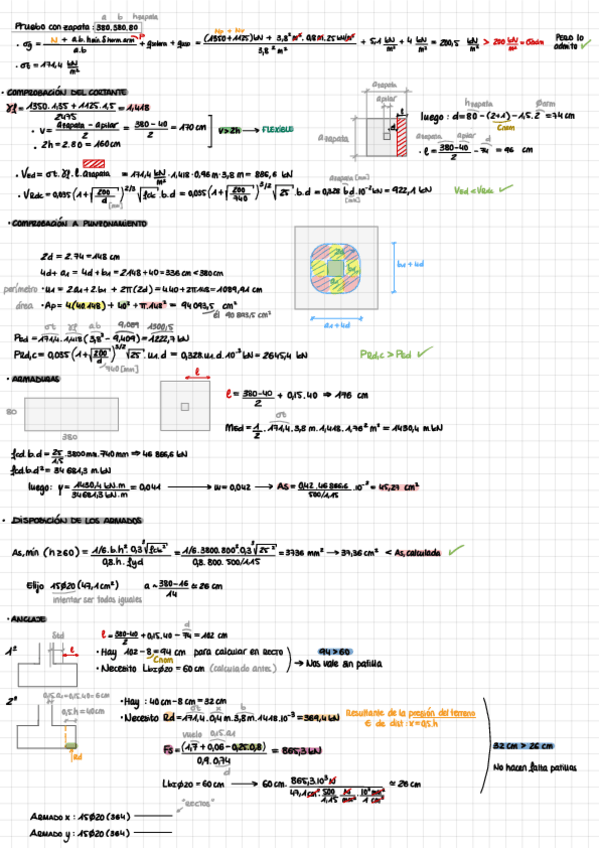 a b hzapata
Prueba con zapata: 380.380.80
Np + Nv
· σg = N + a.b.haz.δhorm.arm / a.b + qsolera + quso = (1350+1125)kN + 3,8² m². 0,8m. 25kN/m³ / 3,8² m² + 5,1 kN/m² + 4 kN/m² = 200,5 kN/m² > 200 kN/m² = σadm PERO lo admito ✓
· σt = 171,4 kN/m²
· COMPROBACIÓN DEL CORTANTE
γf = 1350.1,35 + 1125.1,5 / 2475 = 1,418
· v = azapata - apilar / 2 = 380-40 / 2 = 170 cm
· 2h = 2.80 = 160 cm
v>2h → FLEXIBLE
azapata
apilar
l
d
azapata
hzapata φarm
luego: d = 80 - (2+1) - 1,5.2 = 74 cm
Cnom
azapata apilar d
· l = 380-40 / 2 - 74 = 96 cm
· Ved = σt. γf. l. azapata = 171,4 kN/m² · 1,418 · 0,96 m · 3,8 m = 886,6 kN
azapata [mm]
· VRdc = 0,035 (1+√200/d)^3/2 √fck .b.d = 0,035 (1+√200/740)^3/2 √25 .b.d = 0,328 b.d.10⁻³ kN = 922,1 kN
[mm]
Ved < VRdc ✓
· COMPROBACIÓN A PUNZONAMIENTO
2d = 2.74 = 148 cm
4d + a1 = 4d + b1 = 2·148 + 40 = 336 cm < 380 cm
perímetro · u1 = 2a1 + 2b1 + 2π(2d) = 4.40 + 2π.148 = 1089,91 cm
área · Ap = 4(40.148) + 40² + π.148² = 94 093,5 cm²
b1 + 4d
a1 + 4d
σt γf ab
PEd = 171,4 . 1,418 (3,8² - 9,409) = 1222,7 kN
PRd,c = 0,035 (1+√200/d)^3/2 √25 .u1.d = 0,328.u1.d.10⁻³ kN = 2645,4 kN
740 [mm]
PRd,c > PEd ✓
· ARMADURAS
80
380
l
l = 380-40 / 2 + 0,15.40 → 176 cm
σt
MEd = 1/2 . 171,4 . 3,8 m . 1,418 . 1,76² m² = 1430,4 m.kN
fcd.b.d = 25/1,5 . 3800mm. 740 mm → 46 866,6 kN
fcd.b.d² = 34 681,3 m.kN
luego: y = 1430,4 kN.m / 34681,3 kN.m = 0,041 → w = 0,042 → As = 0,42.46866,6 / 500/1,15 .10⁻³ = 45,27 cm²
· DISPOSICIÓN DE LOS ARMADOS
As,mín (h≥60) = 1/6.b.h².0,3 ³√fck² / 0,8.h.fyd = 1/6.3800.800².0,3 ³√25² / 0,8.800.500/1,15 = 3736 mm² → 37,36 cm² < As,calculada ✓
Elijo 15Ø20 (47,1 cm²)
a ~ 380-16 / 14 ≈ 26 cm
intentar ser todas iguales
· ANCLAJE
d
l = 380-40 / 2 + 0,15.40 - 74 = 102 cm
1º
l
· Hay 102 - 8 = 94 cm para calcular en recto
Cnom
· Necesito LbIØ20 = 60 cm (calculado antes)
94 > 60
→ Nos vale sin patilla
2º
0,15.a1 = 0,15.40 = 6cm
0,5.h = 40cm
Rd
· Hay: 40cm - 8cm = 32 cm
σt x b
· Necesito Rd = 171,4 . 0,4 m . 3,8 m . 1,418.10⁻³ = 369,4 kN
Resultante de la presión del terreno
€ de dist: x = 0,5.h
vuelo 0,15.a1
Fs = (1,7 + 0,06 - 0,25.0,8) / 0,9.0,74 = 865,3 kN
d
LbIØ20 = 60 cm → 60 cm. 865,3.10³ N / 47,1 cm². 500/1,15 N/mm². 10² mm²/1 cm² ≈ 26 cm
32 cm > 26 cm
No hacen falta patillas
"RECTOS"
ARMADO x : 15Ø20 (364)
ARMADO y : 15Ø20 (364)